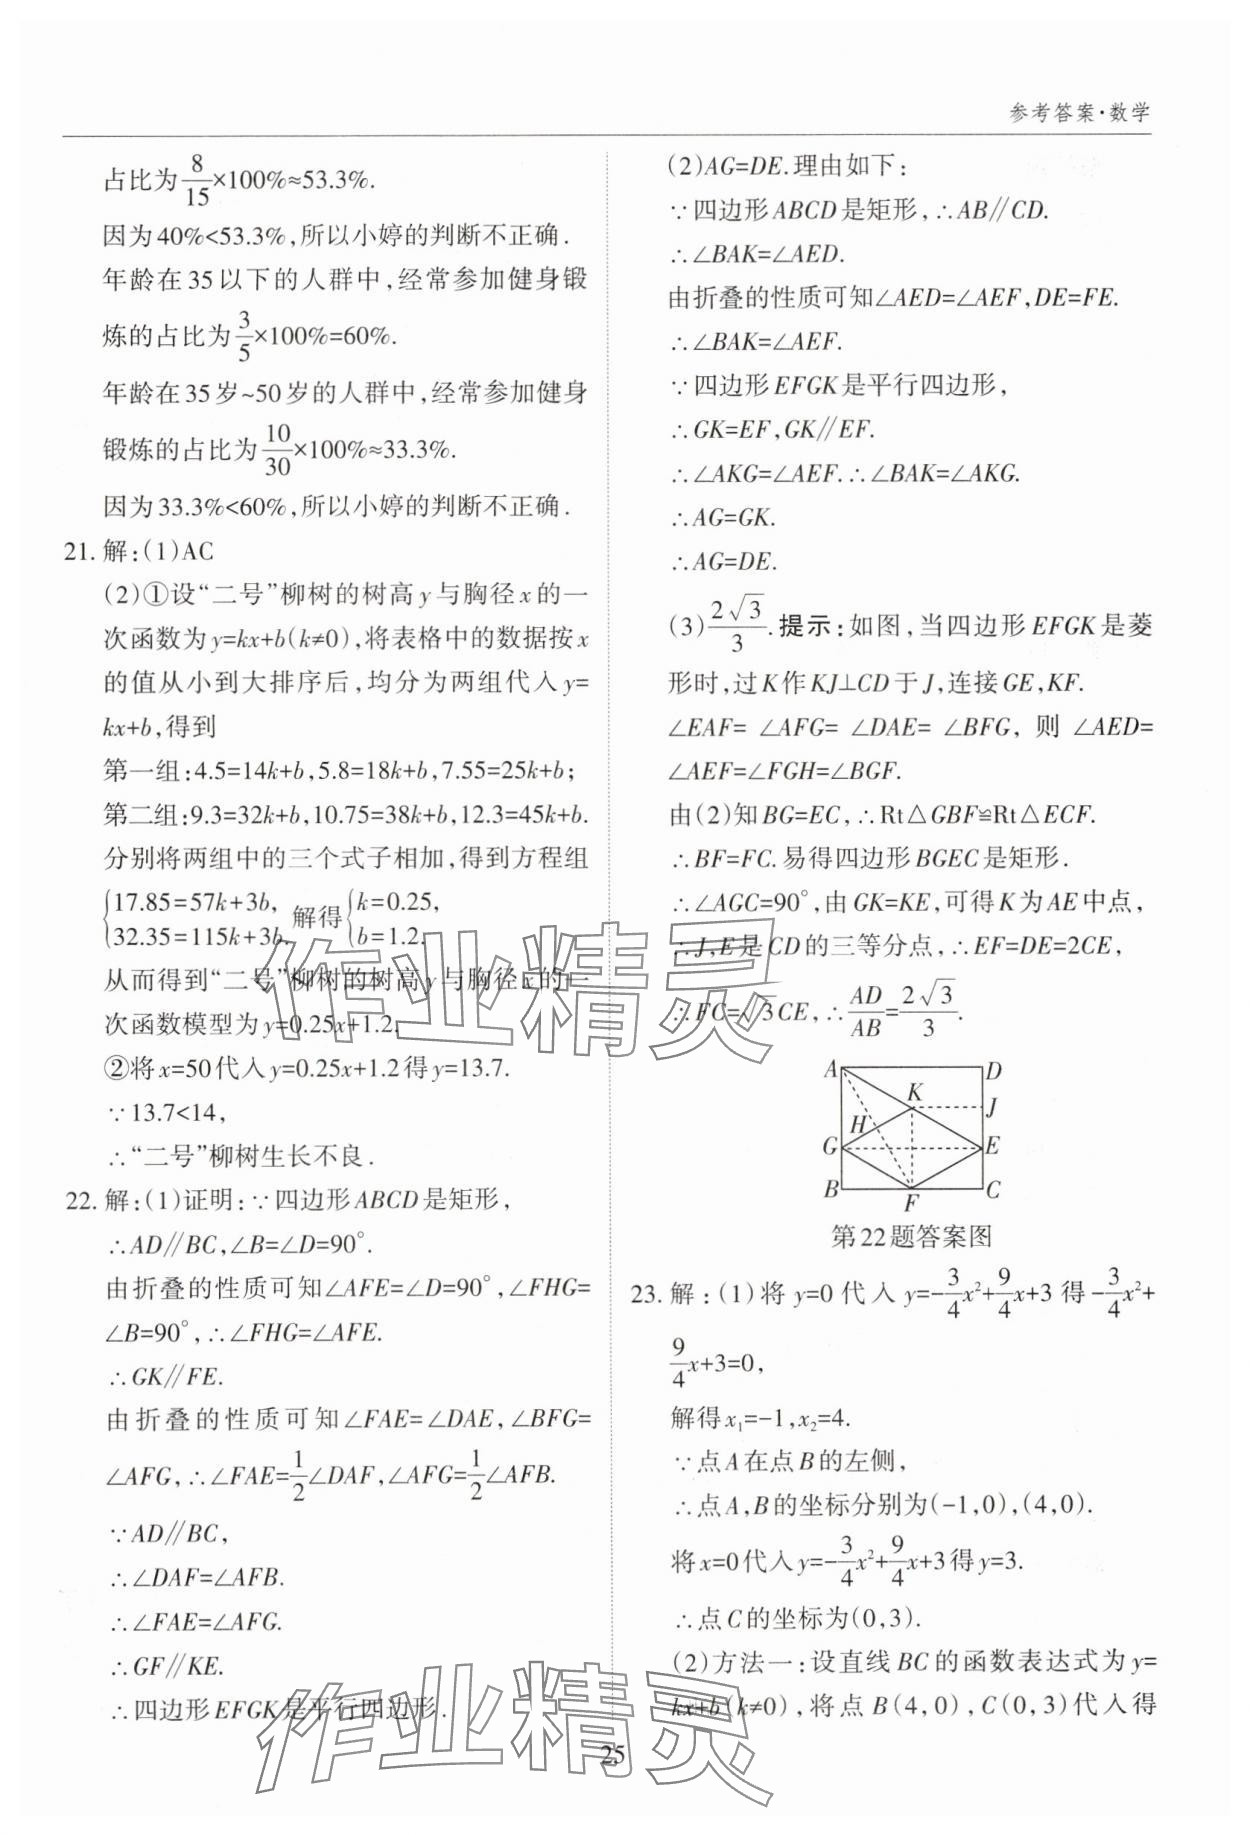 参考答案·数学
占比为8/15×100%≈53.3%.
因为40%<53.3%,所以小婷的判断不正确.
年龄在35以下的人群中,经常参加健身锻
炼的占比为3/5×100%=60%.
年龄在35岁~50岁的人群中,经常参加健身
锻炼的占比为10/30×100%≈33.3%.
因为33.3%<60%,所以小婷的判断不正确.
21. 解:(1)AC
(2)①设“二号”柳树的树高y与胸径x的一
次函数为y=kx+b(k≠0),将表格中的数据按x
的值从小到大排序后,均分为两组代入y=
kx+b,得到
第一组:4.5=14k+b,5.8=18k+b,7.55=25k+b;
第二组:9.3=32k+b,10.75=38k+b,12.3=45k+b.
分别将两组中的三个式子相加,得到方程组
{17.85=57k+3b, 32.35=115k+3b. 解得{k=0.25, b=1.2.
从而得到“二号”柳树的树高y与胸径x的一
次函数模型为y=0.25x+1.2.
②将x=50代入y=0.25x+1.2得y=13.7.
∵13.7<14,
∴“二号”柳树生长不良.
22. 解:(1)证明:∵四边形ABCD是矩形,
∴AD∥BC,∠B=∠D=90°.
由折叠的性质可知∠AFE=∠D=90°,∠FHG=
∠B=90°,∴∠FHG=∠AFE.
∴GK∥FE.
由折叠的性质可知∠FAE=∠DAE,∠BFG=
∠AFG,∴∠FAE=1/2∠DAF,∠AFG=1/2∠AFB.
∵AD∥BC,
∴∠DAF=∠AFB.
∴∠FAE=∠AFG.
∴GF∥KE.
∴四边形EFGK是平行四边形.
(2)AG=DE.理由如下:
∵四边形ABCD是矩形,∴AB∥CD.
∴∠BAK=∠AED.
由折叠的性质可知∠AED=∠AEF,DE=FE.
∴∠BAK=∠AEF.
∵四边形EFGK是平行四边形,
∴GK=EF,GK∥EF.
∴∠AKG=∠AEF.∴∠BAK=∠AKG.
∴AG=GK.
∴AG=DE.
(3)2√3/3.提示:如图,当四边形EFGK是菱
形时,过K作KJ⊥CD于J,连接GE,KF.
∠EAF=∠AFG=∠DAE=∠BFG,则∠AED=
∠AEF=∠FGH=∠BGF.
由(2)知BG=EC,∴Rt△GBF≌Rt△ECF.
∴BF=FC.易得四边形BGEC是矩形.
∴∠AGC=90°,由GK=KE,可得K为AE中点,
∴J,E是CD的三等分点,∴EF=DE=2CE,
∴FC=√3CE,∴AD/AB=2√3/3.
A D
K J
H
G E
B F C
第22题答案图
23. 解:(1)将y=0代入y=-3/4x²+9/4x+3得-3/4x²+
9/4x+3=0,
解得x₁=-1,x₂=4.
∵点A在点B的左侧,
∴点A,B的坐标分别为(-1,0),(4,0).
将x=0代入y=-3/4x²+9/4x+3得y=3.
∴点C的坐标为(0,3).
(2)方法一:设直线BC的函数表达式为y=
kx+b(k≠0),将点B(4,0),C(0,3)代入得
作业精灵
作业精灵
25